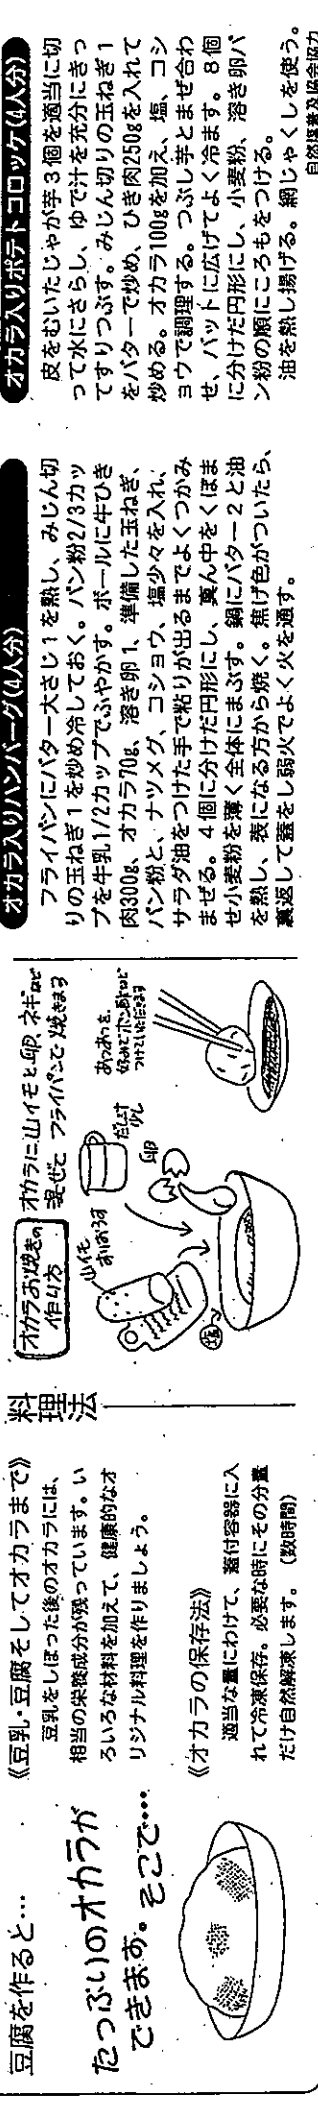 豆腐を作ると…
たっぷりのオカラが
できます。そこで…
《豆乳・豆腐そしてオカラまで》
豆乳をしぼった後のオカラには、
相当の栄養成分が残っています。い
ろいろな材料を加えて、健康的なオ
リジナル料理を作りましょう。
《オカラの保存法》
適当な量にわけて、蓋付容器に入
れて冷凍保存。必要な時にその分量
だけ自然解凍します。（数時間）
料理法
オカラお焼きの
作り方
オカラに山イモと卵、ネギなど
混ぜて フライパンで焼きます
山イモ
すりおろす
だし汁
少し
卵
塩
あつあつを、
好みでポン酢など
つけていただきます
オカラ入りハンバーグ(4人分)
フライパンにバター大さじ1を熱し、みじん切
りの玉ねぎ1を炒め冷しておく。パン粉2/3カッ
プを牛乳1/2カップでふやかす。ボールに牛ひき
肉300g、オカラ70g、溶き卵1、準備した玉ねぎ、
パン粉と、ナツメグ、コショウ、塩少々を入れ、
サラダ油をつけた手で粘りが出るまでよくつかみ
まぜる。4個に分けだ円形にし、真ん中をくぼま
せ小麦粉を薄く全体にまぶす。鍋にバター2と油
を熱し、表になる方から焼く。焦げ色がついたら、
裏返して蓋をし弱火でよく火を通す。
オカラ入りポテトコロッケ(4人分)
皮をむいたじゃが芋3個を適当に切
って水にさらし、ゆで汁を充分にきっ
てすりつぶす。みじん切りの玉ねぎ1
をバターで炒め、ひき肉250gを入れて
炒める。オカラ100gを加え、塩、コシ
ョウで調理する。つぶし芋とまぜ合わ
せ、バットに広げてよく冷ます。8個
に分けだ円形にし、小麦粉、溶き卵パ
ン粉の順にころもをつける。
油を熱し揚げる。網じゃくしを使う。
自然経普及協会協力